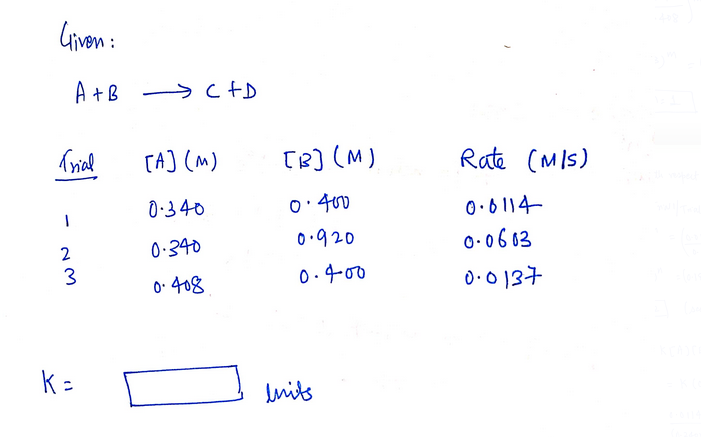 Given:
A+B → C+D
Trial [A](M) [B](M) Rate (M/S)
1 0.340 0.400 0.0114
2 0.340 0.920 0.0603
3 0.408 0.400 0.0137
K = units